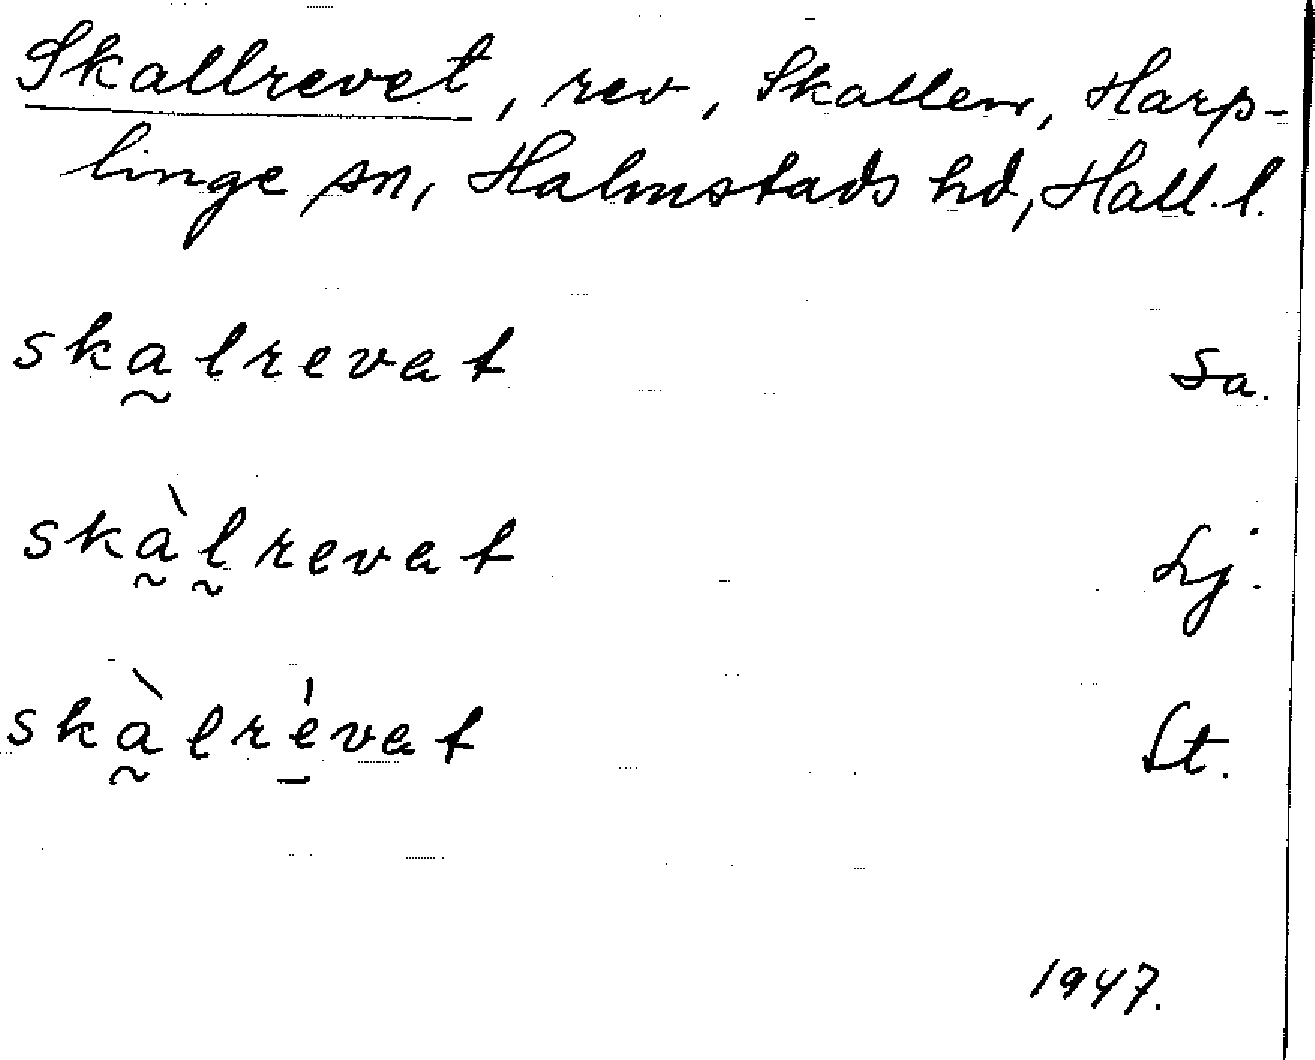 Skallrevet, rev, Skallen, Harp-
linge sn, Halmstads hd, Hall. l.
ska̰lrevat Sa.
skà̰l̰revat Lj.
skà̰lré̱vat St.
1947.